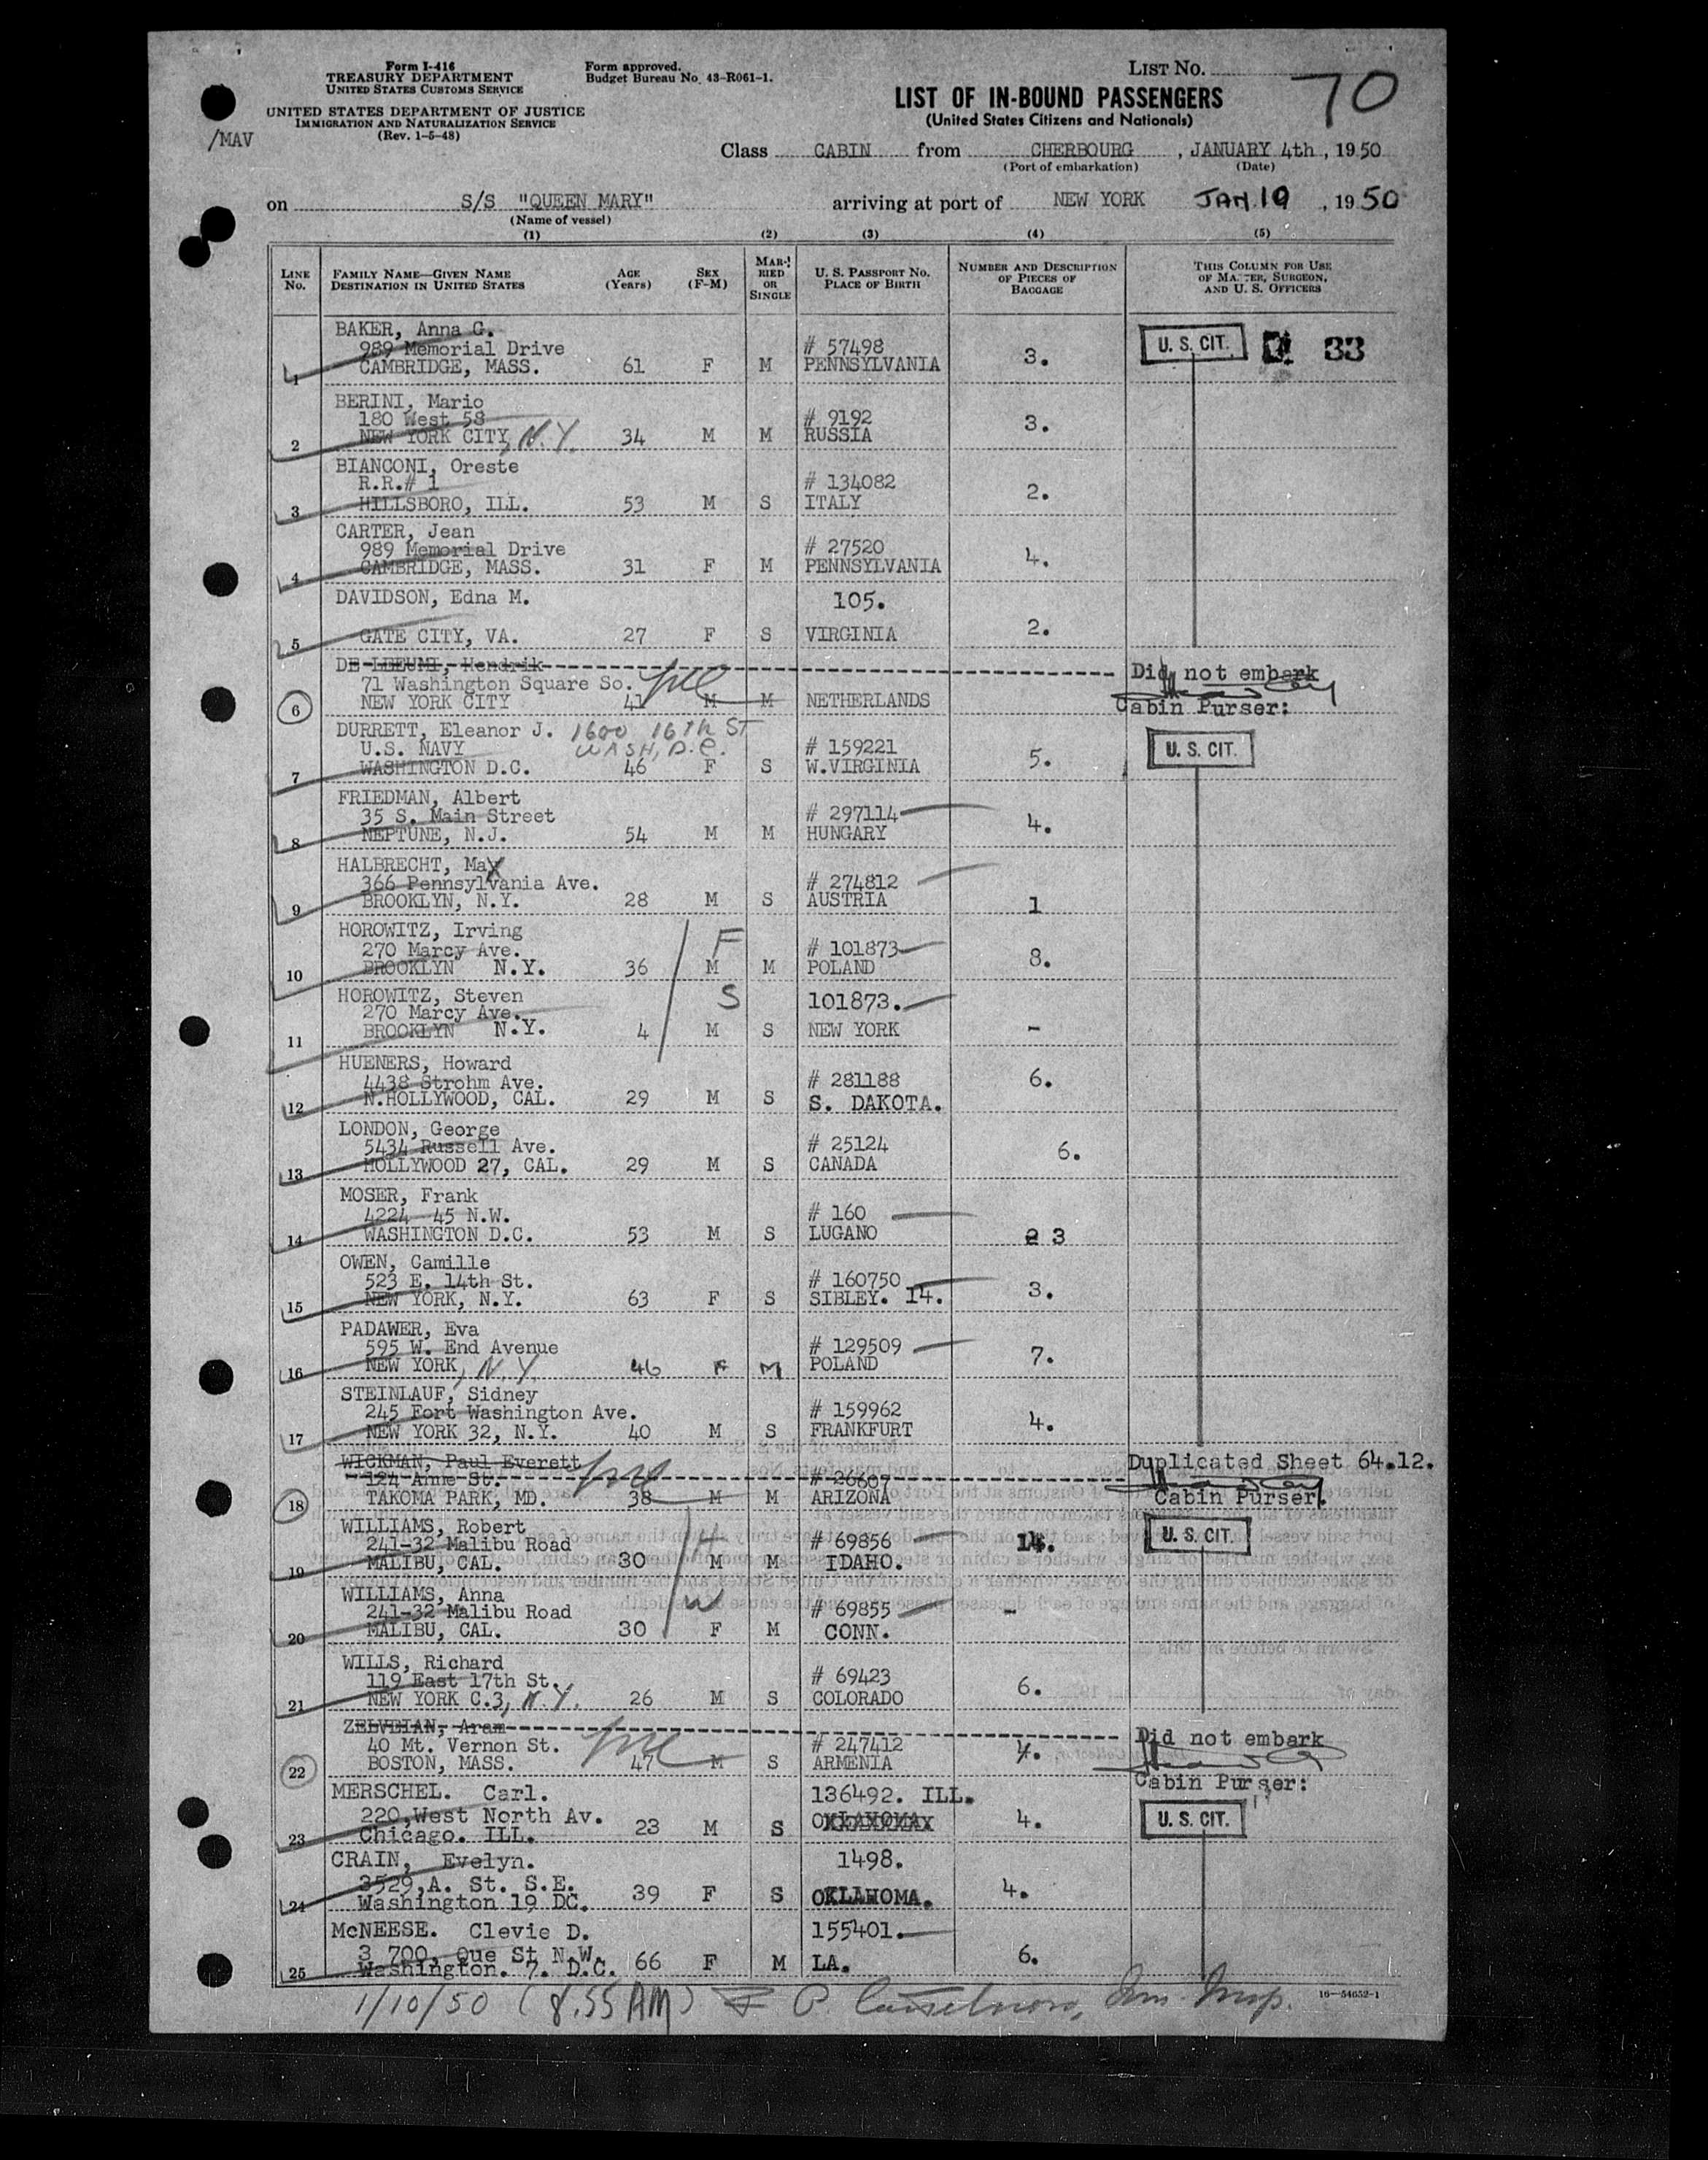 Form I-416
TREASURY DEPARTMENT
UNITED STATES CUSTOMS SERVICE
UNITED STATES DEPARTMENT OF JUSTICE
IMMIGRATION AND NATURALIZATION SERVICE
(Rev. 1-5-48)
/MAV
Form approved.
Budget Bureau No. 43-R061-1.
LIST No. 70
LIST OF IN-BOUND PASSENGERS
(United States Citizens and Nationals)
Class CABIN from CHERBOURG, JANUARY 4th, 1950
(Port of embarkation) (Date)
on S/S "QUEEN MARY" arriving at port of NEW YORK JAN 10, 1950
(Name of vessel)
(1) (2) (3) (4) (5)
LINE No. FAMILY NAME—GIVEN NAME DESTINATION IN UNITED STATES AGE (Years) SEX (F-M) MARRIED OR SINGLE U. S. PASSPORT No. PLACE OF BIRTH NUMBER AND DESCRIPTION OF PIECES OF BAGGAGE THIS COLUMN FOR USE OF MASTER, SURGEON, AND U. S. OFFICERS
BAKER, Anna G.
989 Memorial Drive # 57498 3. U. S. CIT. 33
1 CAMBRIDGE, MASS. 61 F M PENNSYLVANIA
BERINI, Mario
180 West 58 # 9192 3.
2 NEW YORK CITY, N.Y. 34 M M RUSSIA
BIANCONI, Oreste
R.R.# 1 # 134082 2.
3 HILLSBORO, ILL. 53 M S ITALY
CARTER, Jean
989 Memorial Drive # 27520 4.
4 CAMBRIDGE, MASS. 31 F M PENNSYLVANIA
DAVIDSON, Edna M. 105.
5 GATE CITY, VA. 27 F S VIRGINIA 2.
DE LEEUMI, Hendrik Did not embark
71 Washington Square So.
6 NEW YORK CITY 41 M M NETHERLANDS Cabin Purser:
DURRETT, Eleanor J. 1600 16th ST
U.S. NAVY WASH, D.C. # 159221 5. U. S. CIT.
7 WASHINGTON D.C. 46 F S W.VIRGINIA
FRIEDMAN, Albert
35 S. Main Street # 297114 4.
8 NEPTUNE, N.J. 54 M M HUNGARY
HALBRECHT, Max
366 Pennsylvania Ave. # 274812
9 BROOKLYN, N.Y. 28 M S AUSTRIA 1
HOROWITZ, Irving F
270 Marcy Ave. # 101873 8.
10 BROOKLYN N.Y. 36 M M POLAND
HOROWITZ, Steven S 101873.
270 Marcy Ave.
11 BROOKLYN N.Y. 4 M S NEW YORK -
HUENERS, Howard
4438 Strohm Ave. # 281188 6.
12 N.HOLLYWOOD, CAL. 29 M S S. DAKOTA.
LONDON, George
5434 Russell Ave. # 25124 6.
13 HOLLYWOOD 27, CAL. 29 M S CANADA
MOSER, Frank
4224 45 N.W. # 160
14 WASHINGTON D.C. 53 M S LUGANO 2 3
OWEN, Camille
523 E. 14th St. # 160750 3.
15 NEW YORK, N.Y. 63 F S SIBLEY. I4.
PADAWER, Eva
595 W. End Avenue # 129509 7.
16 NEW YORK, N.Y. 46 F M POLAND
STEINLAUF, Sidney
245 Fort Washington Ave. # 159962 4.
17 NEW YORK 32, N.Y. 40 M S FRANKFURT
WICKMAN, Paul Everett Duplicated Sheet 64.12.
124 Anne St. # 26607
18 TAKOMA PARK, MD. 38 M M ARIZONA Cabin Purser.
WILLIAMS, Robert H
241-32 Malibu Road # 69856 14. U. S. CIT.
19 MALIBU, CAL. 30 M M IDAHO.
WILLIAMS, Anna W
241-32 Malibu Road # 69855 -
20 MALIBU, CAL. 30 F M CONN.
WILLS, Richard
119 East 17th St. # 69423 6.
21 NEW YORK C.3, N.Y. 26 M S COLORADO
ZELVEIAN, Aram Did not embark
40 Mt. Vernon St. # 247412
22 BOSTON, MASS. 47 M S ARMENIA 4. Cabin Purser:
MERSCHEL. Carl. 136492. ILL.
220, West North Av. OKLAHOMA 4. U. S. CIT.
23 Chicago. ILL. 23 M S
CRAIN, Evelyn. 1498.
3529, A. St. S.E.
24 Washington 19 DC. 39 F S OKLAHOMA. 4.
McNEESE. Clevie D. 155401.
3 700, Que St N.W.
25 Washington. 7. D.C. 66 F M LA. 6.
1/10/50 (8.55 AM) Imm. Insp.
16—54652-1